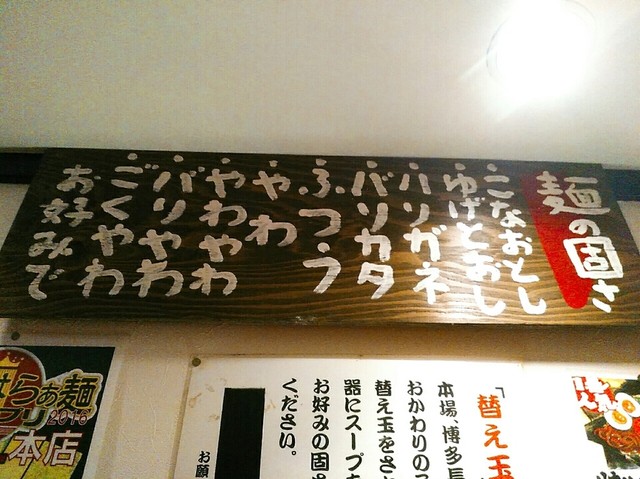 麺の固さ
こなおとし
ゆげとおし
ハリガネ
バリカタ
ふつう
やわ
やわやわ
バリやわ
ごくやわ
お好みで
「替え玉
本場、博多長
おかわりの
替え玉をさ
器にスープ
お好みの固さ
ください。
お願
らぁ麺
プリ2016
本店